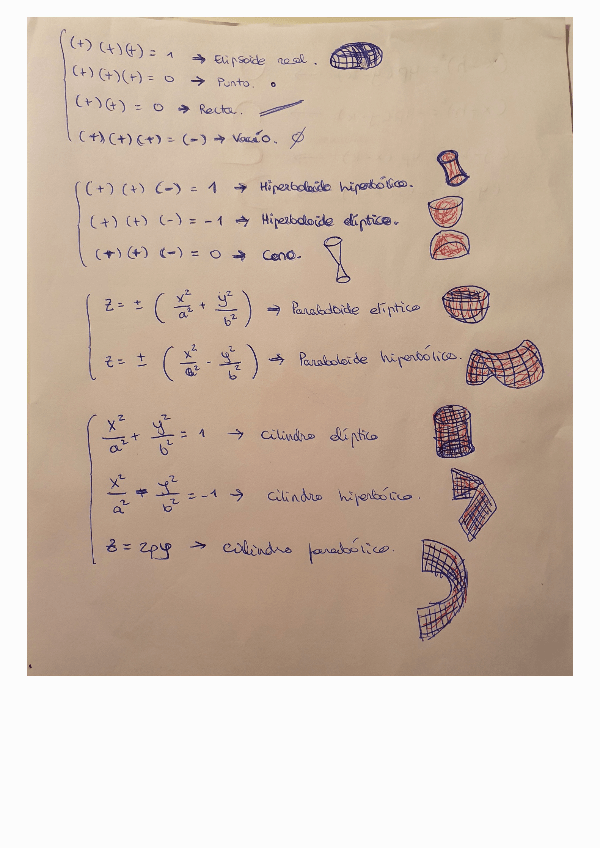 (+) (+) (+) = 1 → Elipsoide real.
(+) (+) (+) = 0 → Punto.
(+) (+) = 0 → Recta.
(+) (+) (+) = (-) → Vacío. ∅
(+) (+) (-) = 1 → Hiperboloide hiperbólico.
(+) (+) (-) = -1 → Hiperboloide elíptico.
(+) (+) (-) = 0 → Cono.
z = ± (x²/a² + y²/b²) → Paraboloide elíptico
z = ± (x²/a² - y²/b²) → Paraboloide hiperbólico.
x²/a² + y²/b² = 1 → cilindro elíptico
x²/a² - y²/b² = -1 → cilindro hiperbólico.
z = 2py → cilindro parabólico.